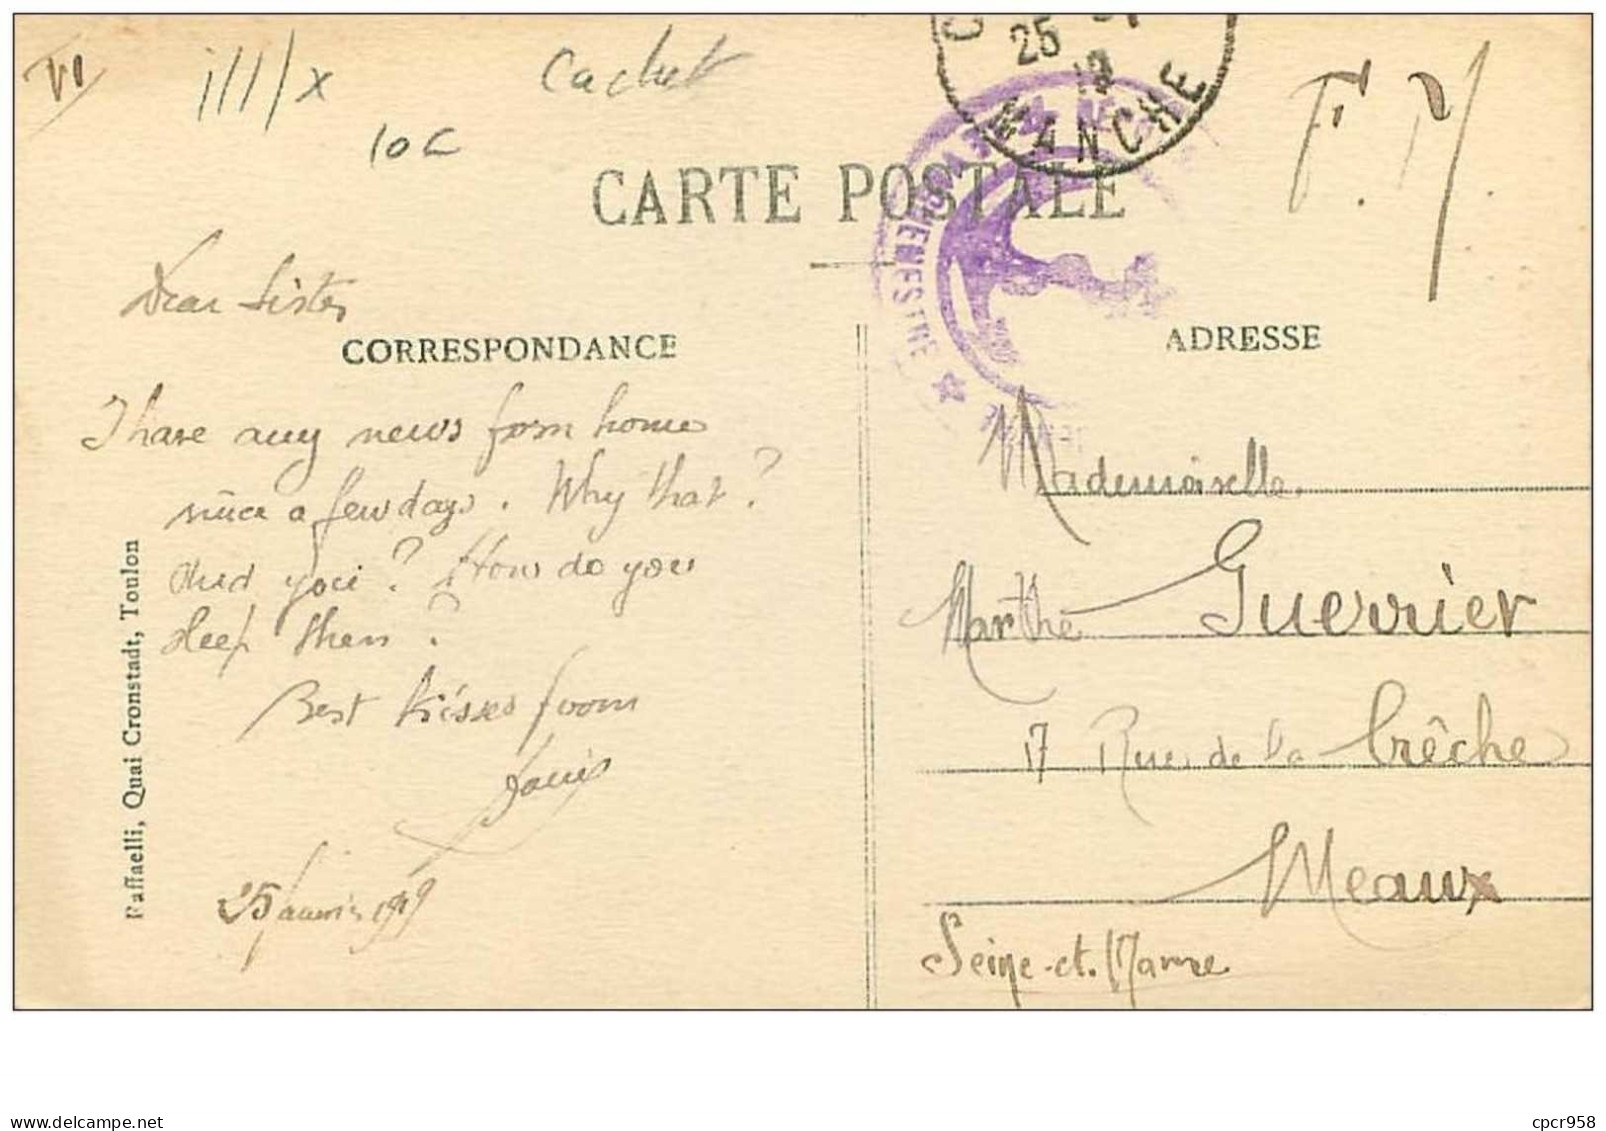 VI
i///x
Cachet
10 C
25
19
MANCHE
F. M.
CARTE POSTALE
Dear Sister
CORRESPONDANCE
I have any news from home
since a few days. Why that?
And you? How do you
sleep then?
Best kisses from
Louis
25 Janvier 1919
Raffaelli, Quai Cronstadt, Toulon
ADRESSE
Mademoiselle
Marthe Guerrier
17 Rue de la Crêche
Meaux
Seine-et-Marne
delcampe.net
cpcr958